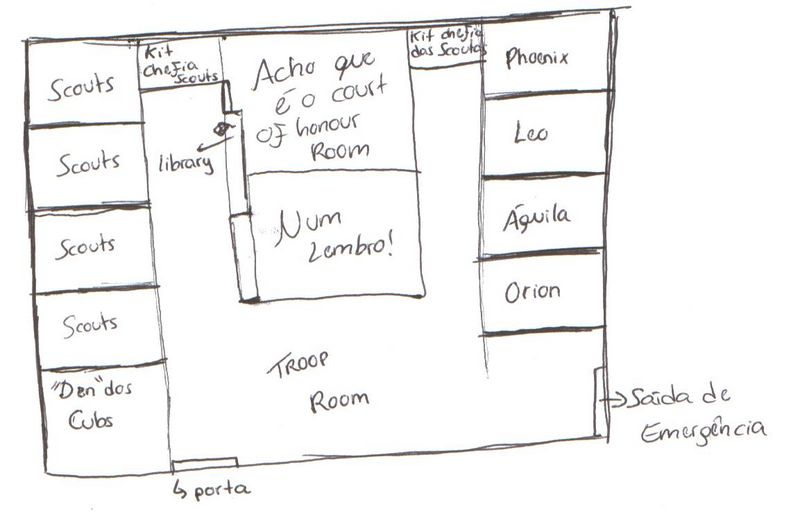 Scouts
Kit
chefia
Scouts
Acho que
é o court
of honour
Room
Kit chefia
das Scoutas
Phoenix
Scouts
library
Leo
Scouts
Num
Lembro!
Águila
Scouts
Orion
"Den" dos
Cubs
Troop
Room
Saída de
Emergência
porta